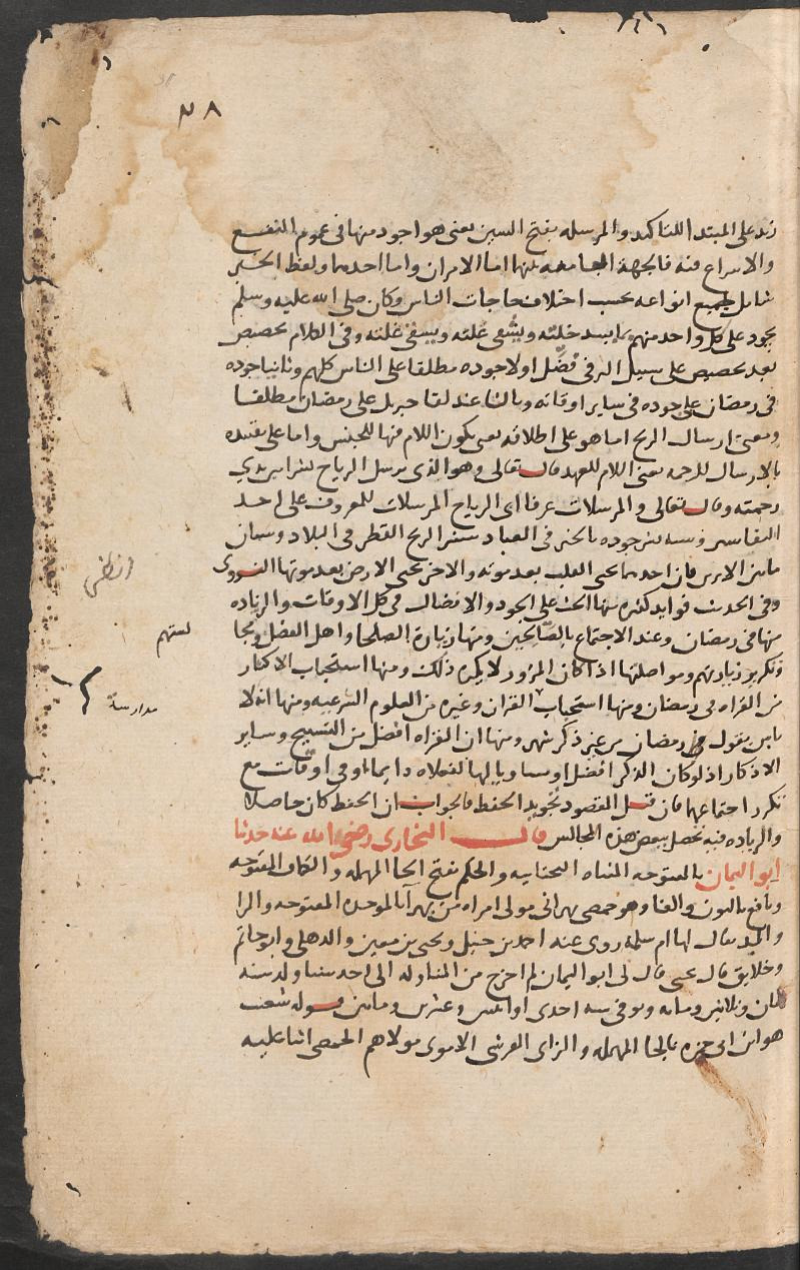 ٣٨
زيد على المبتدا للتاكيد والمرسله بفتح السين يعني هو اجود منها في عموم النفع
والاسراع فيه فالجهة الجامعه بينهما اما الامران واما احدهما ولفظ الخير
شامل لجميع انواعه بحسب اختلاف حاجات الناس وكان صلى الله عليه وسلم
يجود على كل واحد منهم بما يسد خلته ويشفى علته ويسقى غلته وفى الكلام تخصيص
بعد تخصيص على سبيل الترقى فضل اولا جوده مطلقا على الناس كلهم وثانيا جوده
فى رمضان على جوده فى ساير اوقاته وثالثا عند لقا جبريل على رمضان مطلقا
ومعنى ارسال الريح اما هو على اطلاقه يعنى يكون اللام فيها للجنس واما على تقييده
بالارسال للرحمه يعنى اللام للعهد قال تعالى وهو الذى يرسل الرياح نشرا بين يدي
رحمته وقال تعالى والمرسلات عرفا اى الرياح المرسلات للمعروف على احد
التفاسير وشبه نشر جوده بالخير فى العباد بنشر الريح القطر فى البلاد وشتان
ما بين الاثرين فان احدهما يحيى القلب بعد موته والاخر يحيى الارض بعد موتها النووى
وفى الحديث فوايد كثيره منها الحث على الجود والافضال فى كل الاوقات والزياده
منها فى رمضان وعند الاجتماع بالصالحين ومنها زيارة الصلحا واهل الفضل
وتكرير زيارتهم ومواصلتها اذا كان المزور لا يكره ذلك ومنها استحباب الاكثار
من القراه فى رمضان ومنها استحباب القران وغيره من العلوم الشرعيه ومنها انه لا
باس بقول رمضان من غير ذكر شهر ومنها ان القراه افضل من التسبيح وساير
الاذكار اذ لو كان الذكر افضل او مساويا لها لفعلاه دايما او فى اوقات مع
تكرر اجتماعهما فان قيل المقصود تجويد الحفظ فالجواب ان الحفظ كان حاصلا
والزياده فيه تحصل ببعض هذه المجالس قال البخارى رضى الله عنه حدثنا
ابو اليمان بالمفتوحه المثناه التحتانيه والحكم بفتح الحا المهمله والكاف المفتوحه
ونافع بالنون والفا وهو حمصى بهرانى مولى امراه من بهرا بالموحده المفتوحه والرا
والمد يقال لها ام سلمه روى عنه احمد بن حنبل ويحيى بن معين والذهلى وابو حاتم
وخلايق قال يحيى قال لى ابو اليمان لم اخرج من المناوله الى احد شيا ولد سنه
ثمان وثلاثين ومايه وتوفى سنه احدى او اثنتين وعشرين وماتين قوله شعيب
هو ابن ابى حمزه بالحا المهمله والزاى القرشى الاموى مولاهم الحمصى اثنا عليه
لصحبتهم
مدارسة